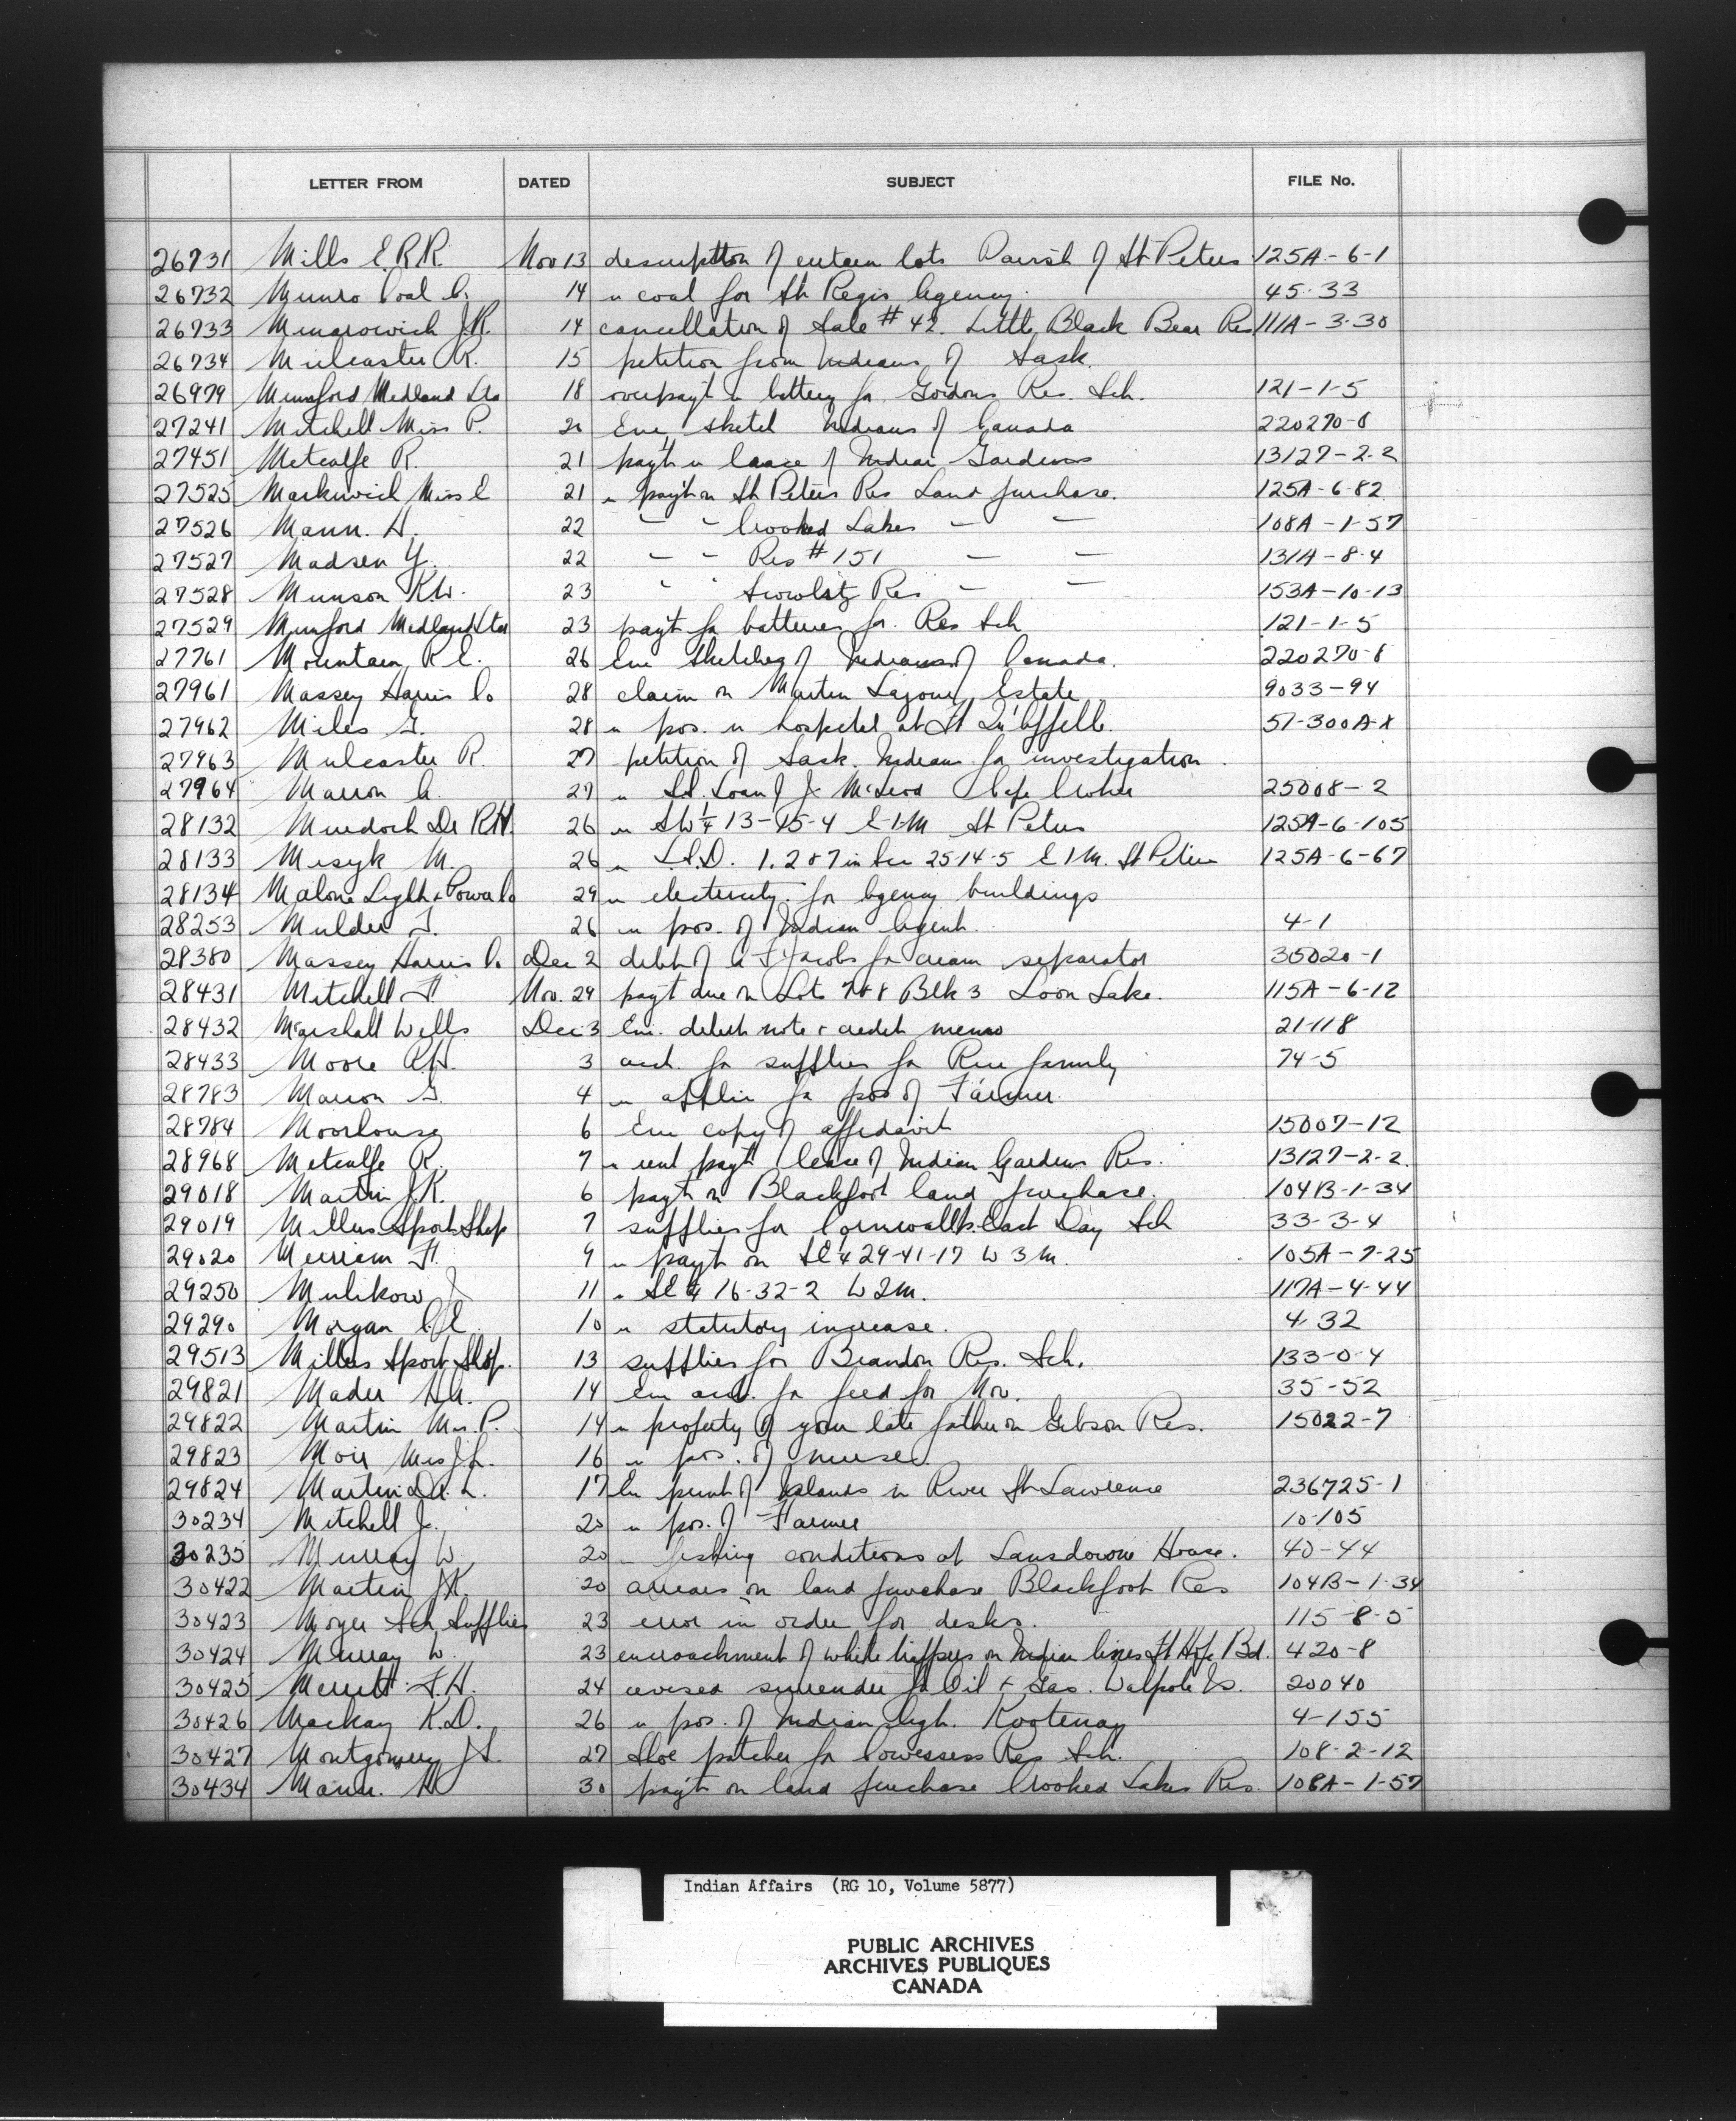 LETTER FROM DATED SUBJECT FILE No.
26731 Mills E.R.R. Nov 13 description of certain lots Parish of St Peters 125A-6-1
26732 Munro Coal Co. 14 re coal for St Regis Agency. 45-33
26733 J.R. 14 cancellation of Sale #42. Little Black Bear Res 111A-3-30
26734 Mulcaster R. 15 petition from Indians of Sask.
26979 Mumford Medland Ltd 18 overpayt re battery for Gordons Res. Sch. 121-1-5
27241 Mitchell Miss P. 20 Enc sketch Indians of Canada 220270-8
27451 Metcalfe R. 21 payt re lease of Indian Gardens 13127-2-2
27525 Markewich Miss E 21 re payt on St Peters Res Land purchase. 125A-6-82
27526 Mann. H. 22 - - Crooked Lakes - - 108A-1-57
27527 Madsen Y. 22 - - Res #151 - - 131A-8-4
27528 Munson R.W. 23 " " Res - - 153A-10-13
27529 Mumford Medland Ltd 23 payt for batteries for Res Sch 121-1-5
27761 Mountain R.E. 26 Enc Sketches of Indians of Canada. 220270-8
27961 Massey Harris Co 28 claim on Martin Estate 9033-94
27962 Miles G. 28 re pos. in hospital at Ft Qu'Appelle. 57-300A-X
27963 Mulcaster R. 27 petition of Sask. Indians for investigation
27964 Marion A. 27 re Sd. Loan of J. McLeod Cape Croker 25008-2
28132 Murdoch Dr R.H. 26 re SW¼ 13-15-4 E1M St Peters 125A-6-105
28133 Misyk M. 26 re L.S.D. 1.2 & 7 in Sec 25-14-5 E1M. St Peters 125A-6-67
28134 Malone Light & Power Co 29 re electricity for Agency buildings
28253 Mulder T. 26 re pos. of Indian Agent. 4-1
28380 Massey Harris Co. Dec 2 debt of A F Jacobs for cream separator 35020-1
28431 Mitchell F Nov. 29 payt due on Lots 7&8 Blk 3 Loon Lake. 115A-6-12
28432 Marshall Wells Dec 3 Enc. debit note & credit memo 21-118
28433 Moore R.H. 3 acct. for supplies for Rice family 74-5
28783 Marion G. 4 re applic for pos of Farmer.
28784 Moorhouse 6 Enc copy of affidavit 15007-12
28968 Metcalfe R. 7 re rent payt lease of Indian Gardens Res. 13127-2-2.
29018 Martin J.K. 6 payt on Blackfoot land purchase. 104B-1-34
29019 Millers Sport Shop 7 supplies for Cornwallis East Day Sch 33-3-4
29020 Merriam F. 9 re payt on SE¼ 29-41-17 W3M. 105A-7-25
29250 Mulikow J 11 re SE¼ 16-32-2 W2M. 117A-4-44
29290 Morgan C.E. 10 re statutory increase. 4-32
29513 Millers Sport Shop. 13 supplies for Brandon Res. Sch. 133-0-4
29821 Mader H.A. 14 Enc acct. for feed for Nov. 35-52
29822 Martin Mrs. P. 14 re property of your late father on Gibson Res. 15022-7
29823 Moir Mrs J.L. 16 re pos. of nurse.
29824 Martin L. 17 Enc print of Islands in River St Lawrence 236725-1
30234 Mitchell J. 20 re pos. of Farmer 10-105
30235 Murray W. 20 re fishing conditions at Lansdowne House. 40-44
30422 Martin J.K. 20 arrears on land purchase Blackfoot Res 104B-1-34
30423 Moyer Sch Supplies 23 error in order for desks. 115-8-5
30424 Murray W. 23 encroachment of white trappers on Indian lines Ft Hope Bd. 420-8
30425 Merritt F.H. 24 revised surrender for Oil & Gas. Walpole Is. 20040
30426 Mackay K.D. 26 re pos. of Indian Agt. Kootenay 4-155
30427 Montgomery J.S. 27 Shoe patcher for Cowessess Res Sch. 108-2-12
30434 Mann. H 30 payt on land purchase Crooked Lakes Res. 108A-1-57
Indian Affairs (RG 10, Volume 5877)
PUBLIC ARCHIVES
ARCHIVES PUBLIQUES
CANADA